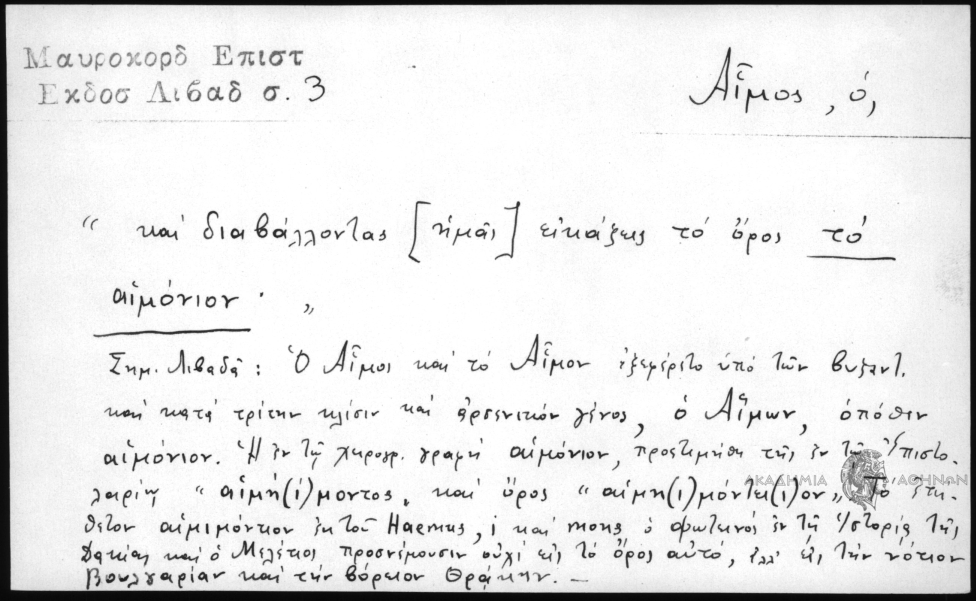 Μαυροκορδ Επιστ
Εκδοσ Λιβαδ σ. 3
Αἷμος, ὁ,
“ καί διαβάλλοντας [ἡμᾶς] εἰκάζεις τό ὄρος τό
αἱμόνιον· „
Σημ. Λιβαδᾶ: Ὁ Αἷμος καί τό Αἷμον ἐξεφέρετο ὑπό τῶν βυζαντ.
καί κατά τρίτην κλίσιν καί ἀρσενικόν γένος, ὁ Αἵμων, ὁπόθεν
αἱμόνιον. Ἡ ἐν τῷ χειρογρ. γραφή αἱμόνιον, προετιμήθη τῆς ἐν τῷ Ἐπιστο-
λαρίῳ “ αἱμη(ι)μοντος, καί ὄρος “ αἱμη(ι)μόντει(ι)ον„. Τό ἐπί-
θετον αἱμιμόντιον ἐκ τοῦ Haemus, i καί mons ὁ Φωτεινός ἐν τῇ Ἱστορίᾳ τῆς
Δακίας καί ὁ Μελέτιος προσνέμουσιν οὐχί εἰς τό ὄρος αὐτό, ἀλλ' εἰς τήν νότιον
Βουλγαρίαν καί τήν βόρειον Θράκην. —
ΑΚΑΔΗΜΙΑ ΑΘΗΝΩΝ